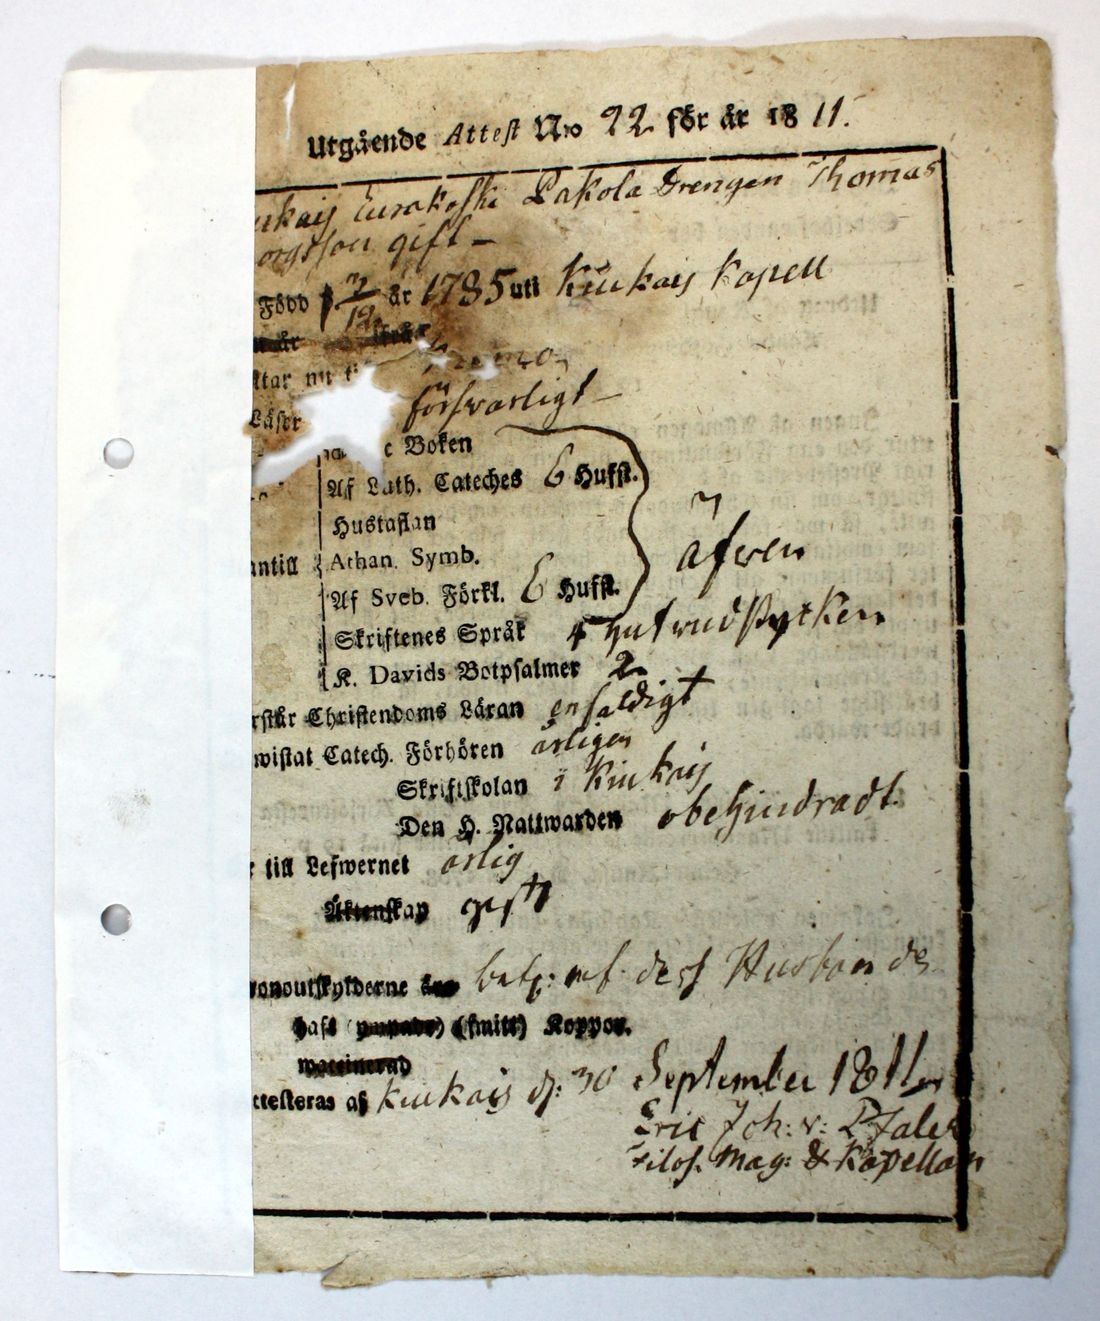 Utgående Attest N:o 22 för år 1811.
Eurakoski Pakola Drengen Thomas
gift –
Född d 3/12 år 1785 uti Kiukais Kapell
försvarligt –
Boken
Af Luth. Cateches 6 Hufst.
Hustaflan
antill Athan. Symb. äfven
Af Sveb. Förkl. 6 Hufst.
Skriftenes Språk 4 hufvudstycken
K. Davids Botpsalmer 2
rstår Christendoms Läran enfaldigt
wistat Catech. Förhören årligen
Skriftskolan i Kiukais
Den H. Nattwarden obehindradt.
r till Lefwernet ärlig
Äktenskap gift
ronoutskylderne betr: af dess Husbonde
haft (smitt) Koppor.
waccinerad
ttesteras af Kiukais d: 30 September 1811
Eric Joh: v: Pfaler
Filos. Mag: & Kapellan